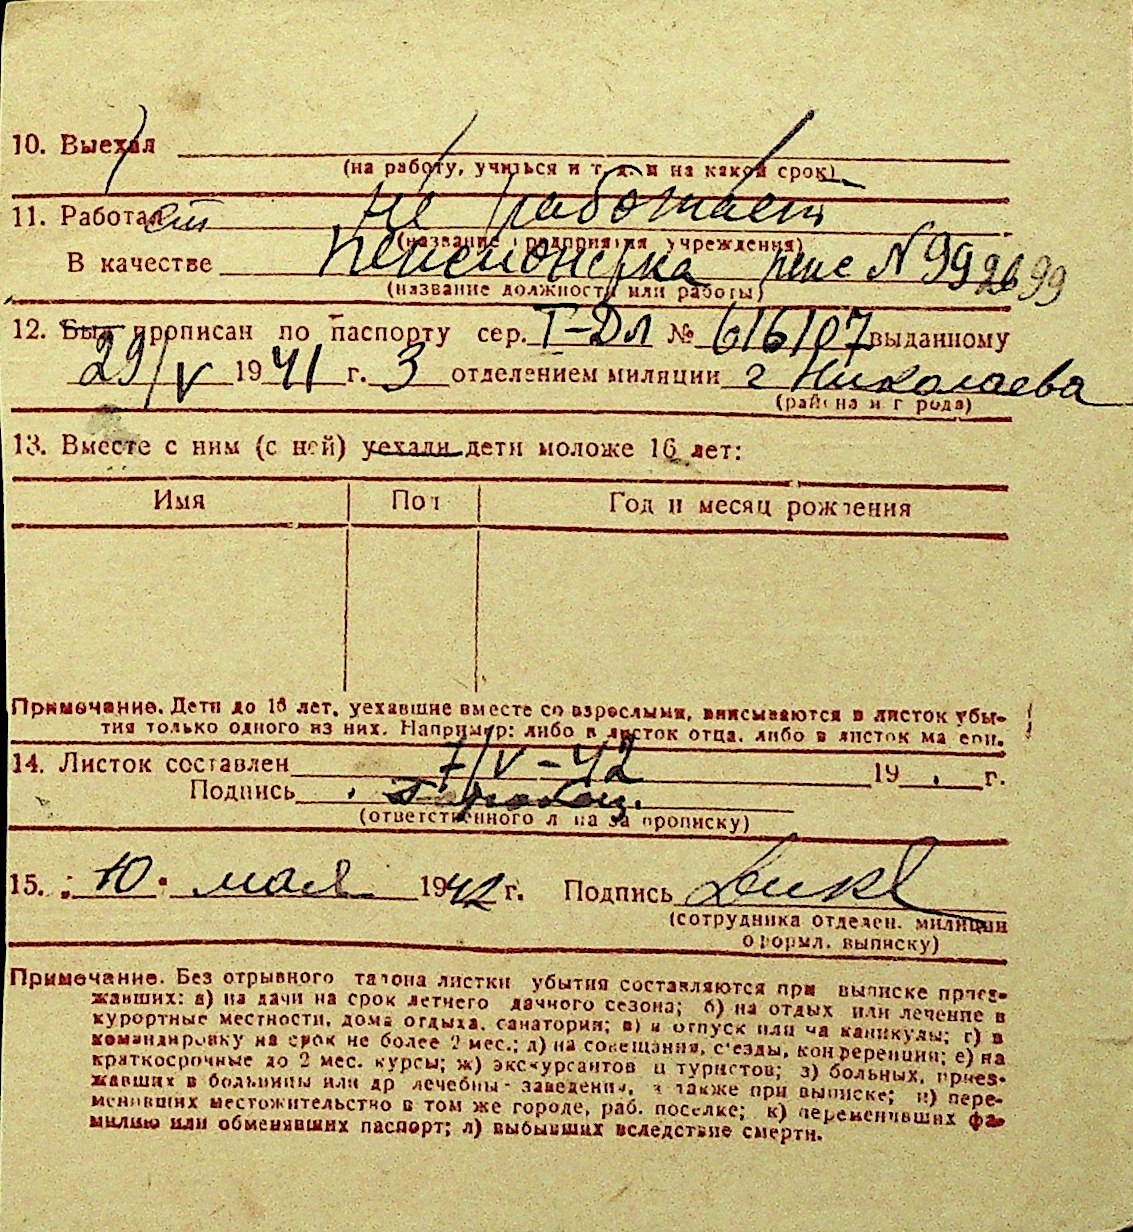 10. Выехал
(на работу, учиться и т. д. и на какой срок)
11. Работает не работает
(название предприятия учреждения)
В качестве пенсионерка пенс N 992699
(название должности или работы)
12. Был прописан по паспорту сер. Т-Дл № 616107 выданному
29/V 1941 г. 3 отделением милиции г Николаева
(района и города)
13. Вместе с ним (с ней) уехали дети моложе 16 лет:
Имя Пол Год и месяц рождения
Примечание. Дети до 16 лет, уехавшие вместе со взрослыми, вписываются в листок убы-
тия только одного из них. Например: либо в листок отца, либо в листок матери.
14. Листок составлен 7/V-42 19 . г.
Подпись
(ответственного лица за прописку)
15. "10" мая 1942 г. Подпись
(сотрудника отделен. милиции
оформл. выписку)
Примечание. Без отрывного талона листки убытия составляются при выписке приез-
жавших: а) на дачи на срок летнего дачного сезона; б) на отдых или лечение в
курортные местности, дома отдыха, санатории; в) в отпуск или на каникулы; г) в
командировку на срок не более 2 мес.; д) на совещания, с'езды, конференции; е) на
краткосрочные до 2 мес. курсы; ж) экскурсантов и туристов; з) больных, приез-
жавших в больницы или др лечебные заведения, а также при выписке; и) пере-
менивших местожительство в том же городе, раб. поселке; к) переменивших фа-
милию или обменявших паспорт; л) выбывших вследствие смерти.